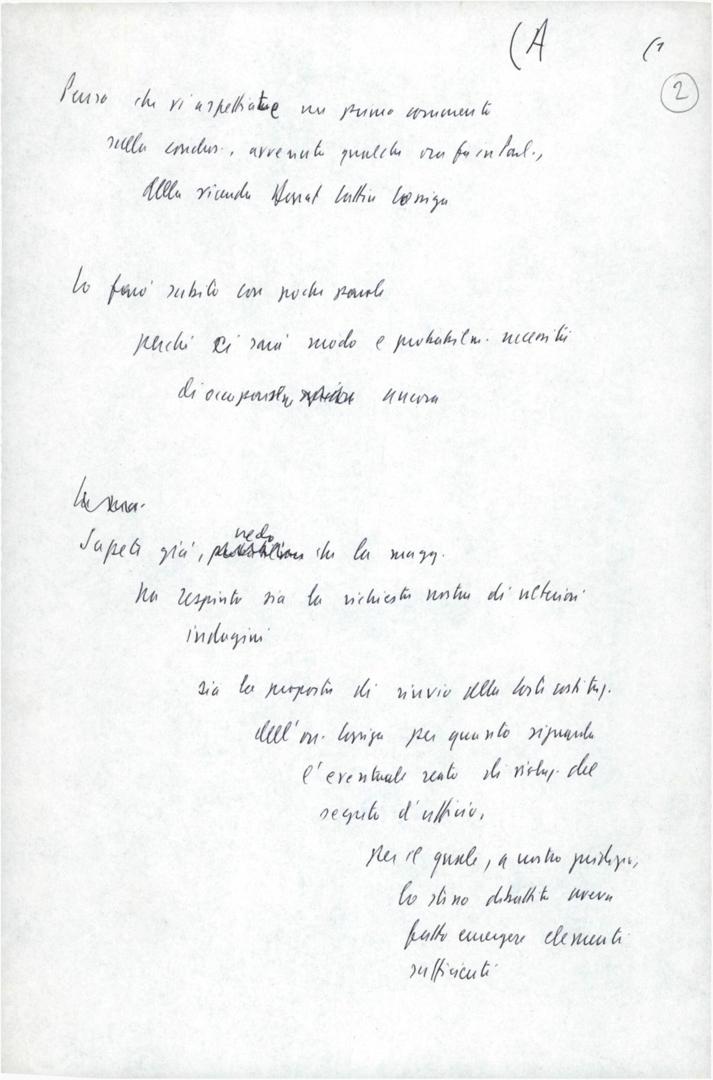 (A
(1
2
Penso che vi aspettiate un primo commento
sulla conclus., avvenuta qualche ora fa in Parl.,
della vicenda Donat Cattin Cossiga
Lo farò subito con poche parole
perché ci sarà modo e probabilm. necessità
di occuparsene ancora
Sapete già, credo che la magg.
ha respinto sia la richiesta nostra di ulteriori
indagini
sia la proposta di rinvio alla Corte costituz.
dell'on. Cossiga per quanto riguarda
l'eventuale reato di violaz. del
segreto d'ufficio,
per il quale, a nostro giudizio,
lo stesso dibattito aveva
fatto emergere elementi
sufficienti